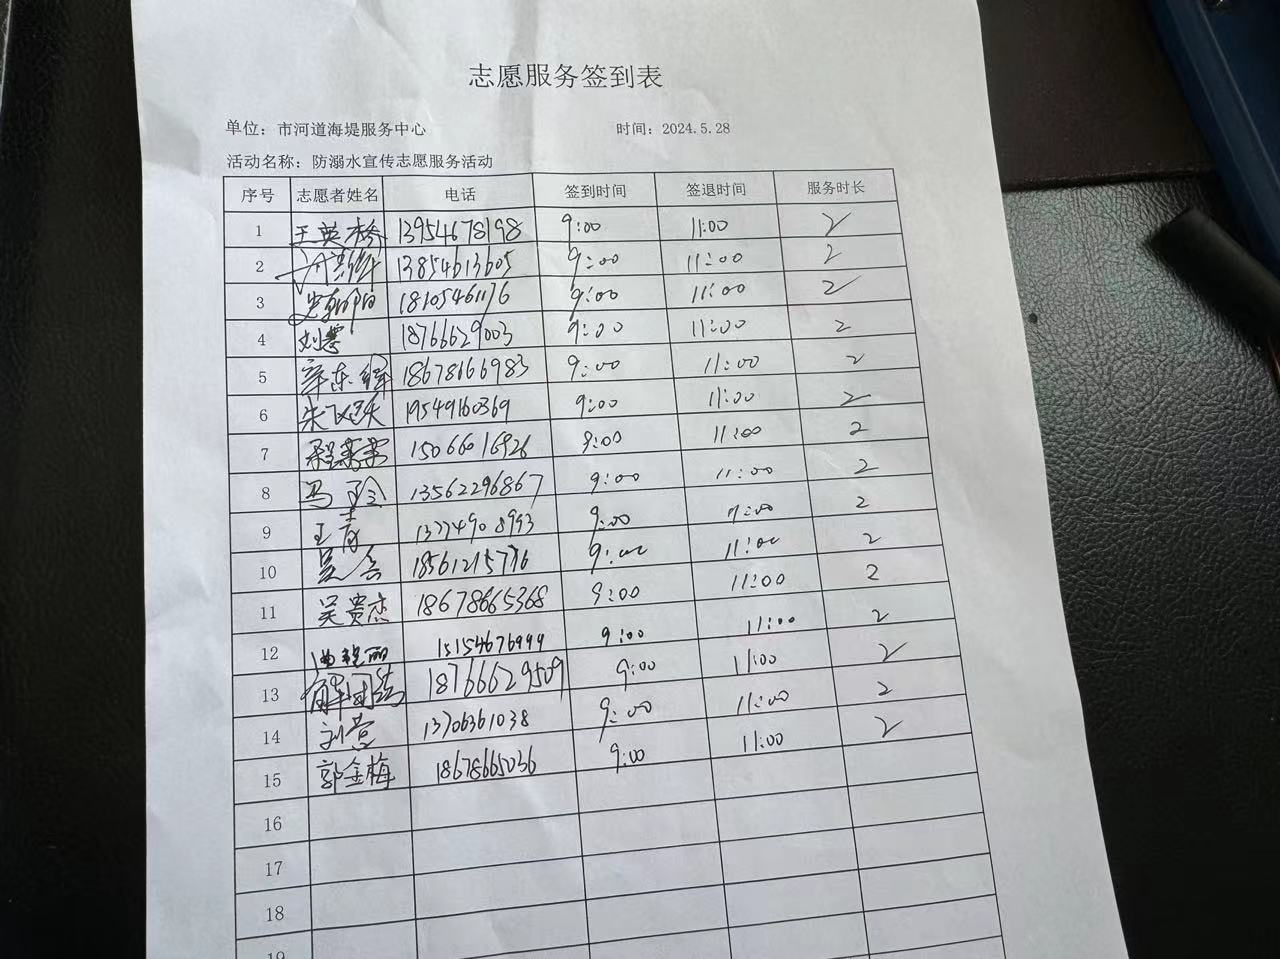 志愿服务签到表
单位：市河道海堤服务中心 时间：2024.5.28
活动名称：防溺水宣传志愿服务活动
序号 志愿者姓名 电话 签到时间 签退时间 服务时长
1 王英桥 13954678198 9:00 11:00 2
2 13854613605 9:00 11:00 2
3 18105461176 9:00 11:00 2
4 刘慧 18766629003 9:00 11:00 2
5 18678166983 9:00 11:00 2
6 19549160369 9:00 11:00 2
7 15066016926 9:00 11:00 2
8 马玲 13562296867 9:00 11:00 2
9 王青 13774908993 9:00 11:00 2
10 18561215776 9:00 11:00 2
11 吴贵杰 18678665368 9:00 11:00 2
12 曲艳丽 15154676999 9:00 11:00 2
13 18766629509 9:00 11:00 2
14 刘营 13706361038 9:00 11:00 2
15 郭金梅 18678665036 9:00 11:00 2
16
17
18
19